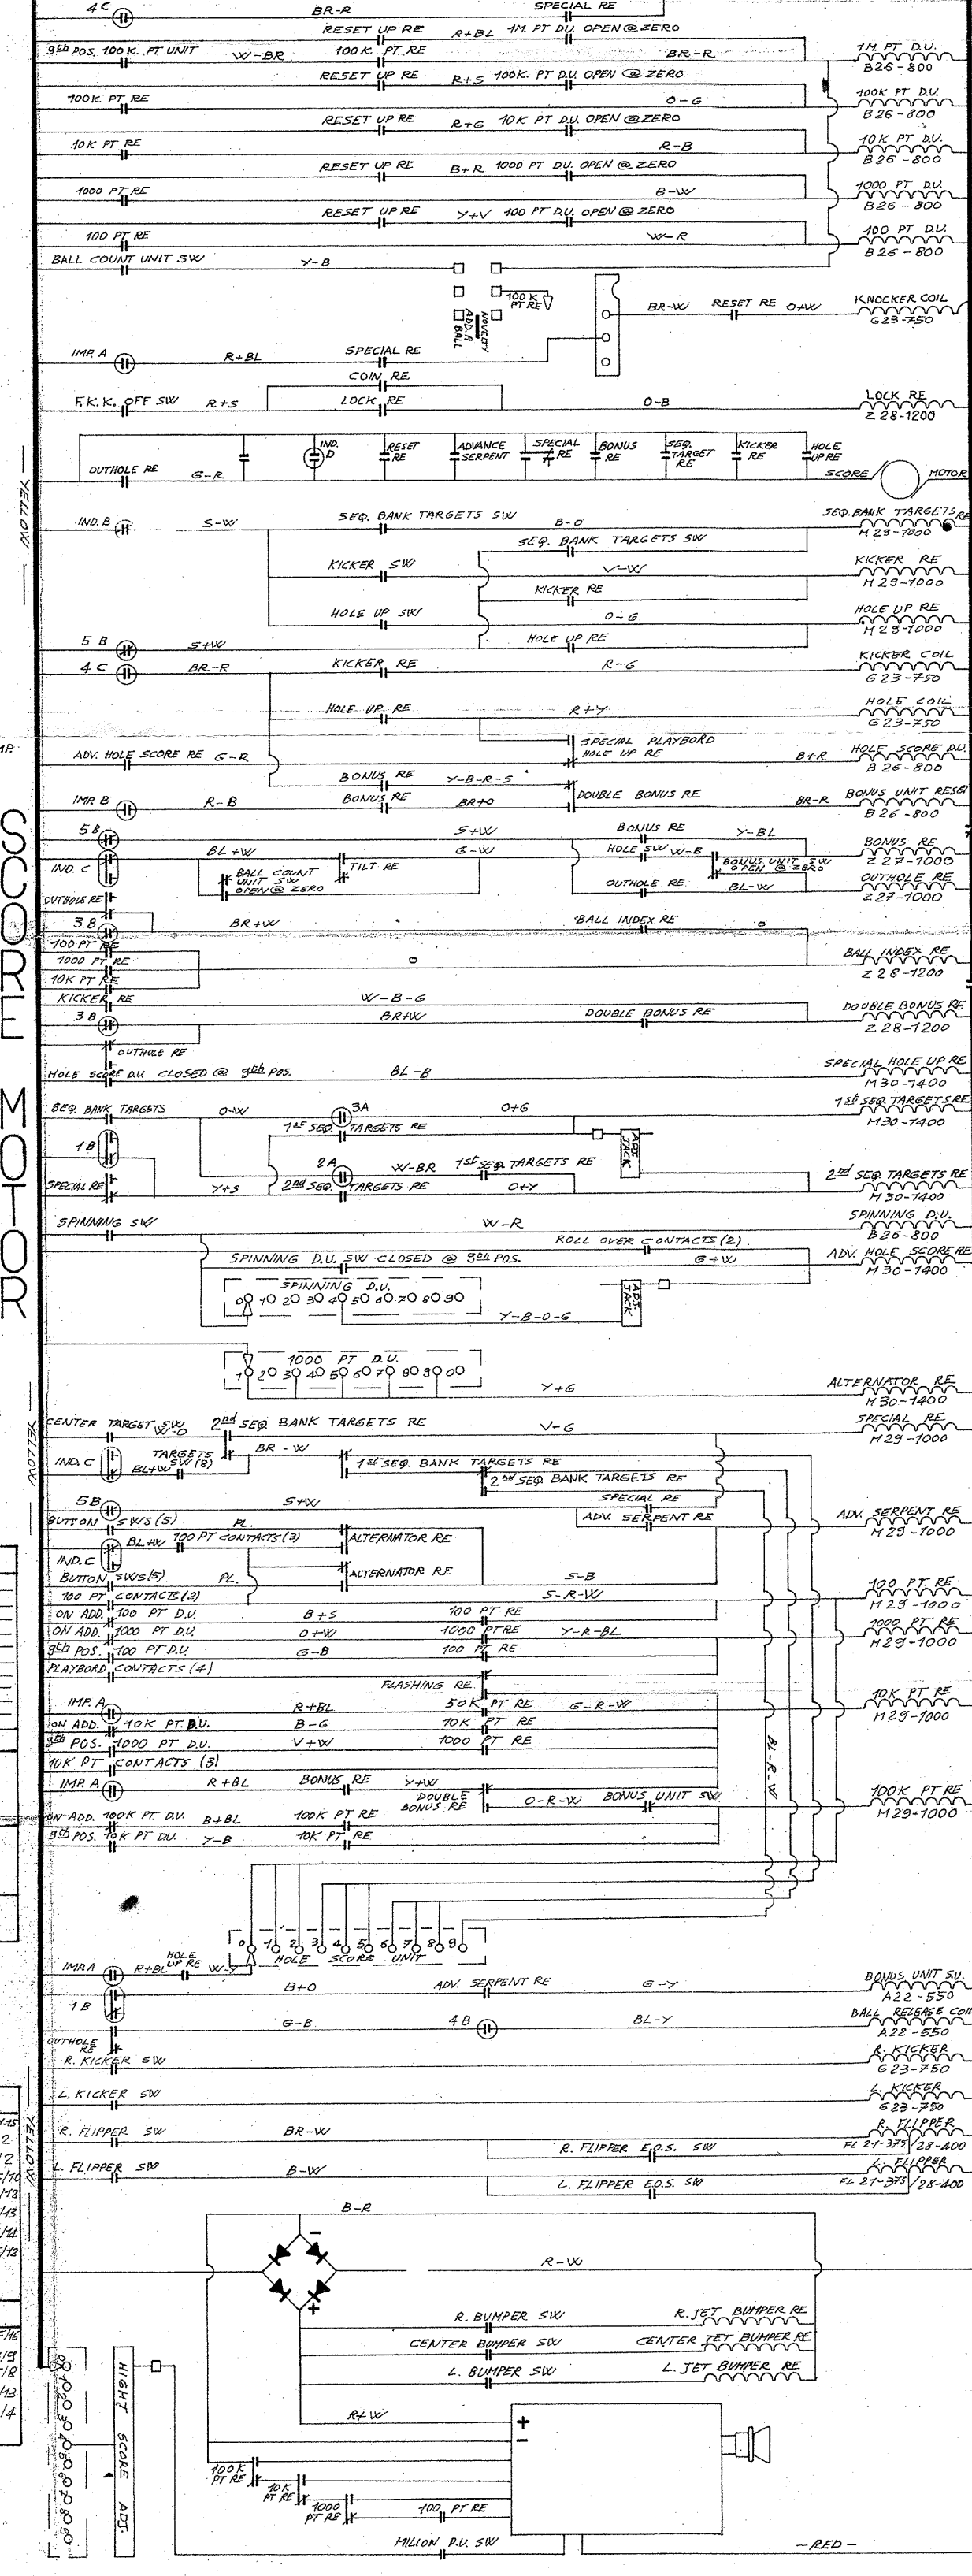 4C BR-R SPECIAL RE
RESET UP RE R+BL 1M. PT D.U. OPEN @ ZERO
9th POS. 100K. PT UNIT W-BR 100K. PT RE BR-R 1M. PT D.U.
B26-800
RESET UP RE R+S 100K. PT D.U. OPEN @ ZERO
100K. PT RE O-G 100K PT D.U.
B26-800
RESET UP RE R+G 10K PT D.U. OPEN @ ZERO
10K PT RE R-B 10K PT D.U.
B26-800
RESET UP RE B+R 1000 PT D.U. OPEN @ ZERO
1000 PT RE B-W 1000 PT D.U.
B26-800
RESET UP RE Y+V 100 PT D.U. OPEN @ ZERO
100 PT RE W-R 100 PT D.U.
B26-800
BALL COUNT UNIT SW Y-B
100K PT RE
NOVELTY
ADD.A BALL
BR-W RESET RE O+W KNOCKER COIL
G23-750
IMP. A R+BL SPECIAL RE
COIN RE
F.K.K. OFF SW R+S LOCK RE O-B LOCK RE
Z 28-1200
IND. D RESET RE ADVANCE SERPENT SPECIAL RE BONUS RE SEQ. TARGET RE KICKER RE HOLE UP RE
OUTHOLE RE G-R SCORE MOTOR
YELLOW
IND. B S-W SEQ. BANK TARGETS SW B-O SEQ. BANK TARGETS RE
M29-1000
SEQ. BANK TARGETS SW
KICKER SW V-W KICKER RE
M29-1000
KICKER RE
HOLE UP SW O-G HOLE UP RE
M29-1000
5B S+W HOLE UP RE
4C BR-R KICKER RE R-G KICKER COIL
G23-750
HOLE UP RE R+Y HOLE COIL
G23-750
SPECIAL PLAYBORD
HOLE UP RE
ADV. HOLE SCORE RE G-R B+R HOLE SCORE D.U.
B26-800
BONUS RE Y-B-R-S
IMP. B R-B BONUS RE BR+O DOUBLE BONUS RE BR-R BONUS UNIT RESET
B26-800
SCORE MOTOR
5B S+W BONUS RE Y-BL BONUS RE
Z27-1000
IND. C BL+W G-W HOLE SW W-B
BALL COUNT UNIT SW OPEN @ ZERO TILT RE BONUS UNIT SW OPEN @ ZERO
OUTHOLE RE BL-W OUTHOLE RE
Z27-1000
OUTHOLE RE
3B BR+W BALL INDEX RE O
100 PT RE
1000 PT RE O BALL INDEX RE
Z28-1200
10K PT RE
KICKER RE W-B-G DOUBLE BONUS RE
Z28-1200
3B BR+W DOUBLE BONUS RE
OUTHOLE RE
HOLE SCORE D.U. CLOSED @ 9th POS. BL-B SPECIAL HOLE UP RE
M30-1400
SEQ. BANK TARGETS O-W 3A O+G 1st SEQ. TARGETS RE
M30-1400
1st SEQ. TARGETS RE
1B ADJ. JACK
2A W-BR 1st SEQ. TARGETS RE
SPECIAL RE Y+S 2nd SEQ. TARGETS RE O+Y 2nd SEQ. TARGETS RE
M30-1400
SPINNING SW W-R SPINNING D.U.
B26-800
ROLL OVER CONTACTS (2)
SPINNING D.U. SW CLOSED @ 9th POS. G+W ADV. HOLE SCORE RE
M30-1400
SPINNING D.U.
0 10 20 30 40 50 60 70 80 90
ADJ. JACK
Y-B-O-G
1000 PT D.U.
1 2 3 4 5 6 7 8 9 0
Y+G ALTERNATOR RE
M30-1400
YELLOW
CENTER TARGET SW W-O 2nd SEQ. BANK TARGETS RE V-G SPECIAL RE
M29-1000
IND. C TARGETS SW (8) BL+W BR-W 1st SEQ. BANK TARGETS RE
2nd SEQ. BANK TARGETS RE
5B S+W SPECIAL RE
BUTTON SWS (5) PL. ADV. SERPENT RE ADV. SERPENT RE
M29-1000
IND. C BL+W 100 PT CONTACTS (3) ALTERNATOR RE
BUTTON SWS (5) PL. ALTERNATOR RE S-B
100 PT CONTACTS (2) S-R-W 100 PT RE
M29-1000
ON ADD. 100 PT D.U. B+S 100 PT RE
ON ADD. 1000 PT D.U. O+W 1000 PT RE Y-R-BL 1000 PT RE
M29-1000
9th POS. 100 PT D.U. G-B 100 PT RE
PLAYBORD CONTACTS (4)
FLASHING RE
IMP. A R+BL 50K PT RE G-R-W 10K PT RE
M29-1000
ON ADD. 10K PT D.U. B-G 10K PT RE
9th POS. 1000 PT D.U. V+W 1000 PT RE
10K PT CONTACTS (3)
BL-R-W
IMP. A R+BL BONUS RE Y+W
DOUBLE BONUS RE O-R-W BONUS UNIT SW 100K PT RE
M29-1000
ON ADD. 100K PT D.U. B+BL 100K PT RE
9th POS. 10K PT D.U. Y-B 10K PT RE
0 1 2 3 4 5 6 7 8 9
HOLE SCORE UNIT
IMP. A R+BL HOLE UP RE W-Y
B+O ADV. SERPENT RE G-Y BONUS UNIT S.U.
A22-550
1B
G-B 4B BL-Y BALL RELEASE COIL
A22-550
OUTHOLE RE
R. KICKER SW R. KICKER
G23-750
L. KICKER SW L. KICKER
G23-750
R. FLIPPER SW BR-W R. FLIPPER
R. FLIPPER E.O.S. SW FL 21-375/28-400
YELLOW
L. FLIPPER SW B-W L. FLIPPER
L. FLIPPER E.O.S. SW FL 21-375/28-400
B-R
-
R-W
+
R. BUMPER SW R. JET BUMPER RE
CENTER BUMPER SW CENTER JET BUMPER RE
L. BUMPER SW L. JET BUMPER RE
R+W +
-
100K PT RE
10K PT RE
1000 PT RE
100 PT RE
MILION D.U. SW
- RED -
HIGHT SCORE ADJ.
0 10 20 30 40 50 60 70 80 90